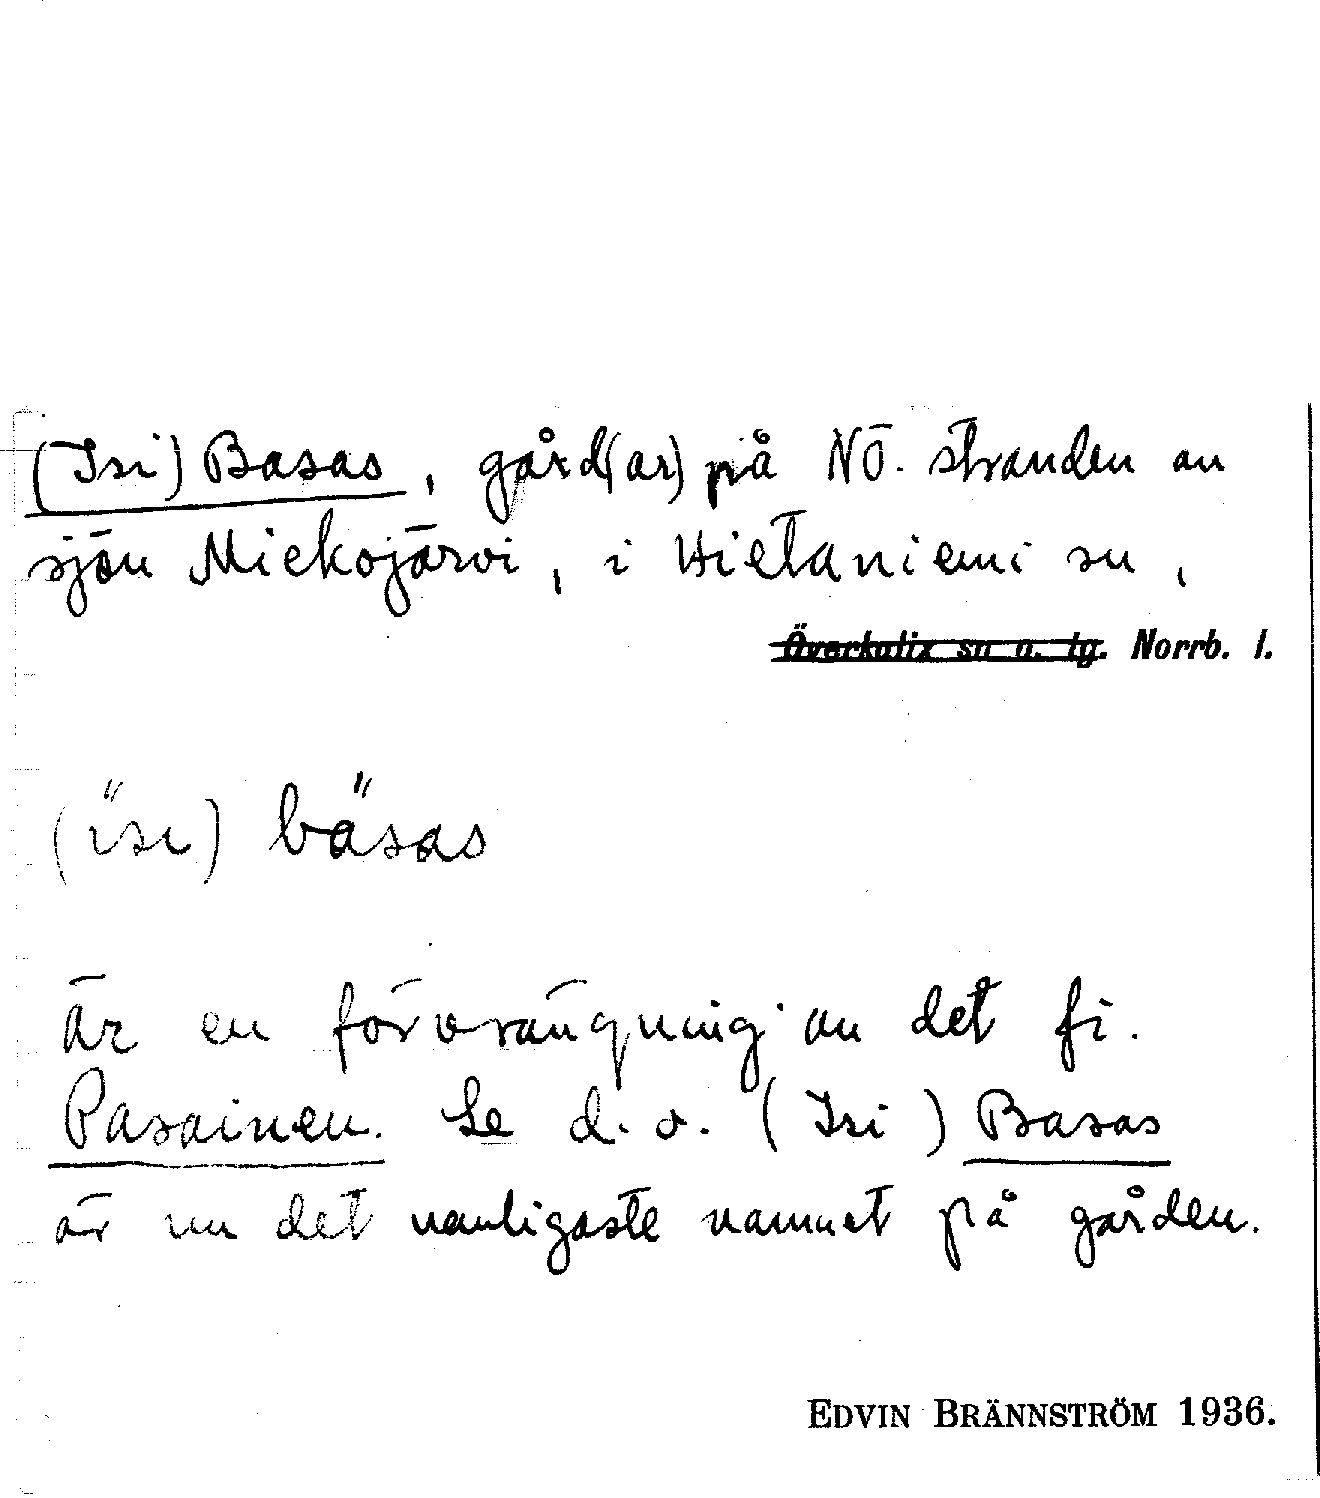 (Isi) Basas, gård(ar) på NÖ. stranden av
sjön Miekojärvi, i Hietaniemi sn,
Överkalix sn o. tg. Norrb. l.
(ïsi) bäsas
är en förvrängning av det fi.
Pasainen. Se d. o. (Isi) Basas
är nu det vanligaste namnet på gården.
EDVIN BRÄNNSTRÖM 1936.